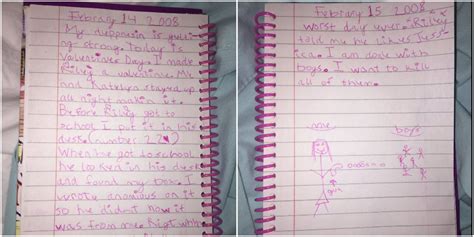 February 14 2008
My deppresin is getting
strong. today is
Valentines Day. I made
Riley a valentine. Me
and Katelyn stayed up
all night makin it.
Before Riley got to
school I put it in his
desk. (number 22)
When he got to school
he looked in his desk
and found my box. I
wrote anomous on it
so he didnt now it
was from me. Right when
February 15 2008
worst day ever. Riley
told me he likes Jess-
ica. I am done with
boys. I want to kill
all of them.
me
boys
gun